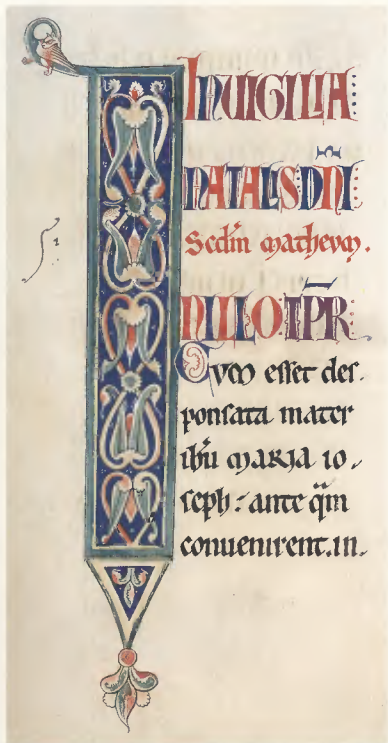 INUIGILIA
NATALIS DÑI
Scd̄m matheum.
N ILLO TP̄R
Cum esset des
ponsata mater
ihu̅ maria io
seph: ante qm̄
conuenirent. in